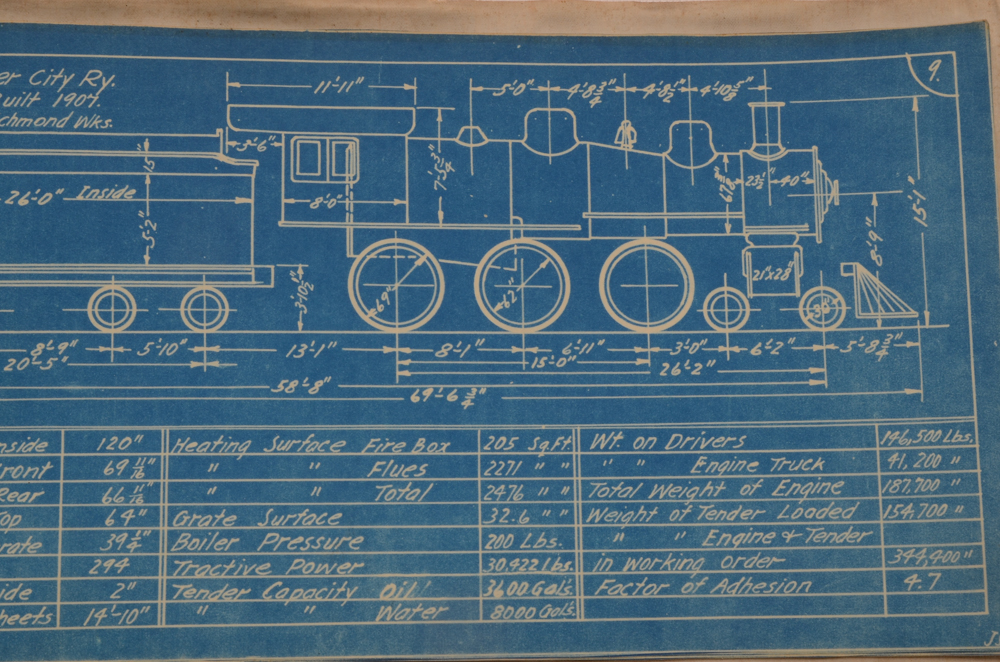 er City Ry.
uilt 1904.
chmond Wks.
9.
11'-11"
5'-0"
4'-8 3/4"
4'-8 1/2"
4'-10 5/8"
3'-6"
15"
7'-5 3/4"
67 3/8"
23 1/2"
40"
15'-1"
26'-0" Inside
8'-0"
5'-2"
8'-9"
3'-10 1/2"
69"
62"
21"x28"
8'-9"
5'-10"
13'-1"
8'-1"
6'-11"
3'-0"
6'-2"
5'-8 3/4"
20'-5"
15'-0"
26'-2"
58'-8"
69'-6 3/4"
nside 120" Heating Surface Fire Box 205 Sq.Ft. Wt. on Drivers 146,500 Lbs.
ront 69 11/16" " " Flues 2271 " " " " Engine Truck 41,200 "
Rear 66 11/16" " " Total 2476 " " Total Weight of Engine 187,700 "
op 64" Grate Surface 32.6 " " Weight of Tender Loaded 154,700 "
rate 39 1/4" Boiler Pressure 200 Lbs. " " Engine & Tender
294 Tractive Power 30,422 Lbs. in working order 344,400 "
ide 2" Tender Capacity Oil 3600 Gal's. Factor of Adhesion 4.7
heets 14'-10" " " Water 8000 Gal's.
J.